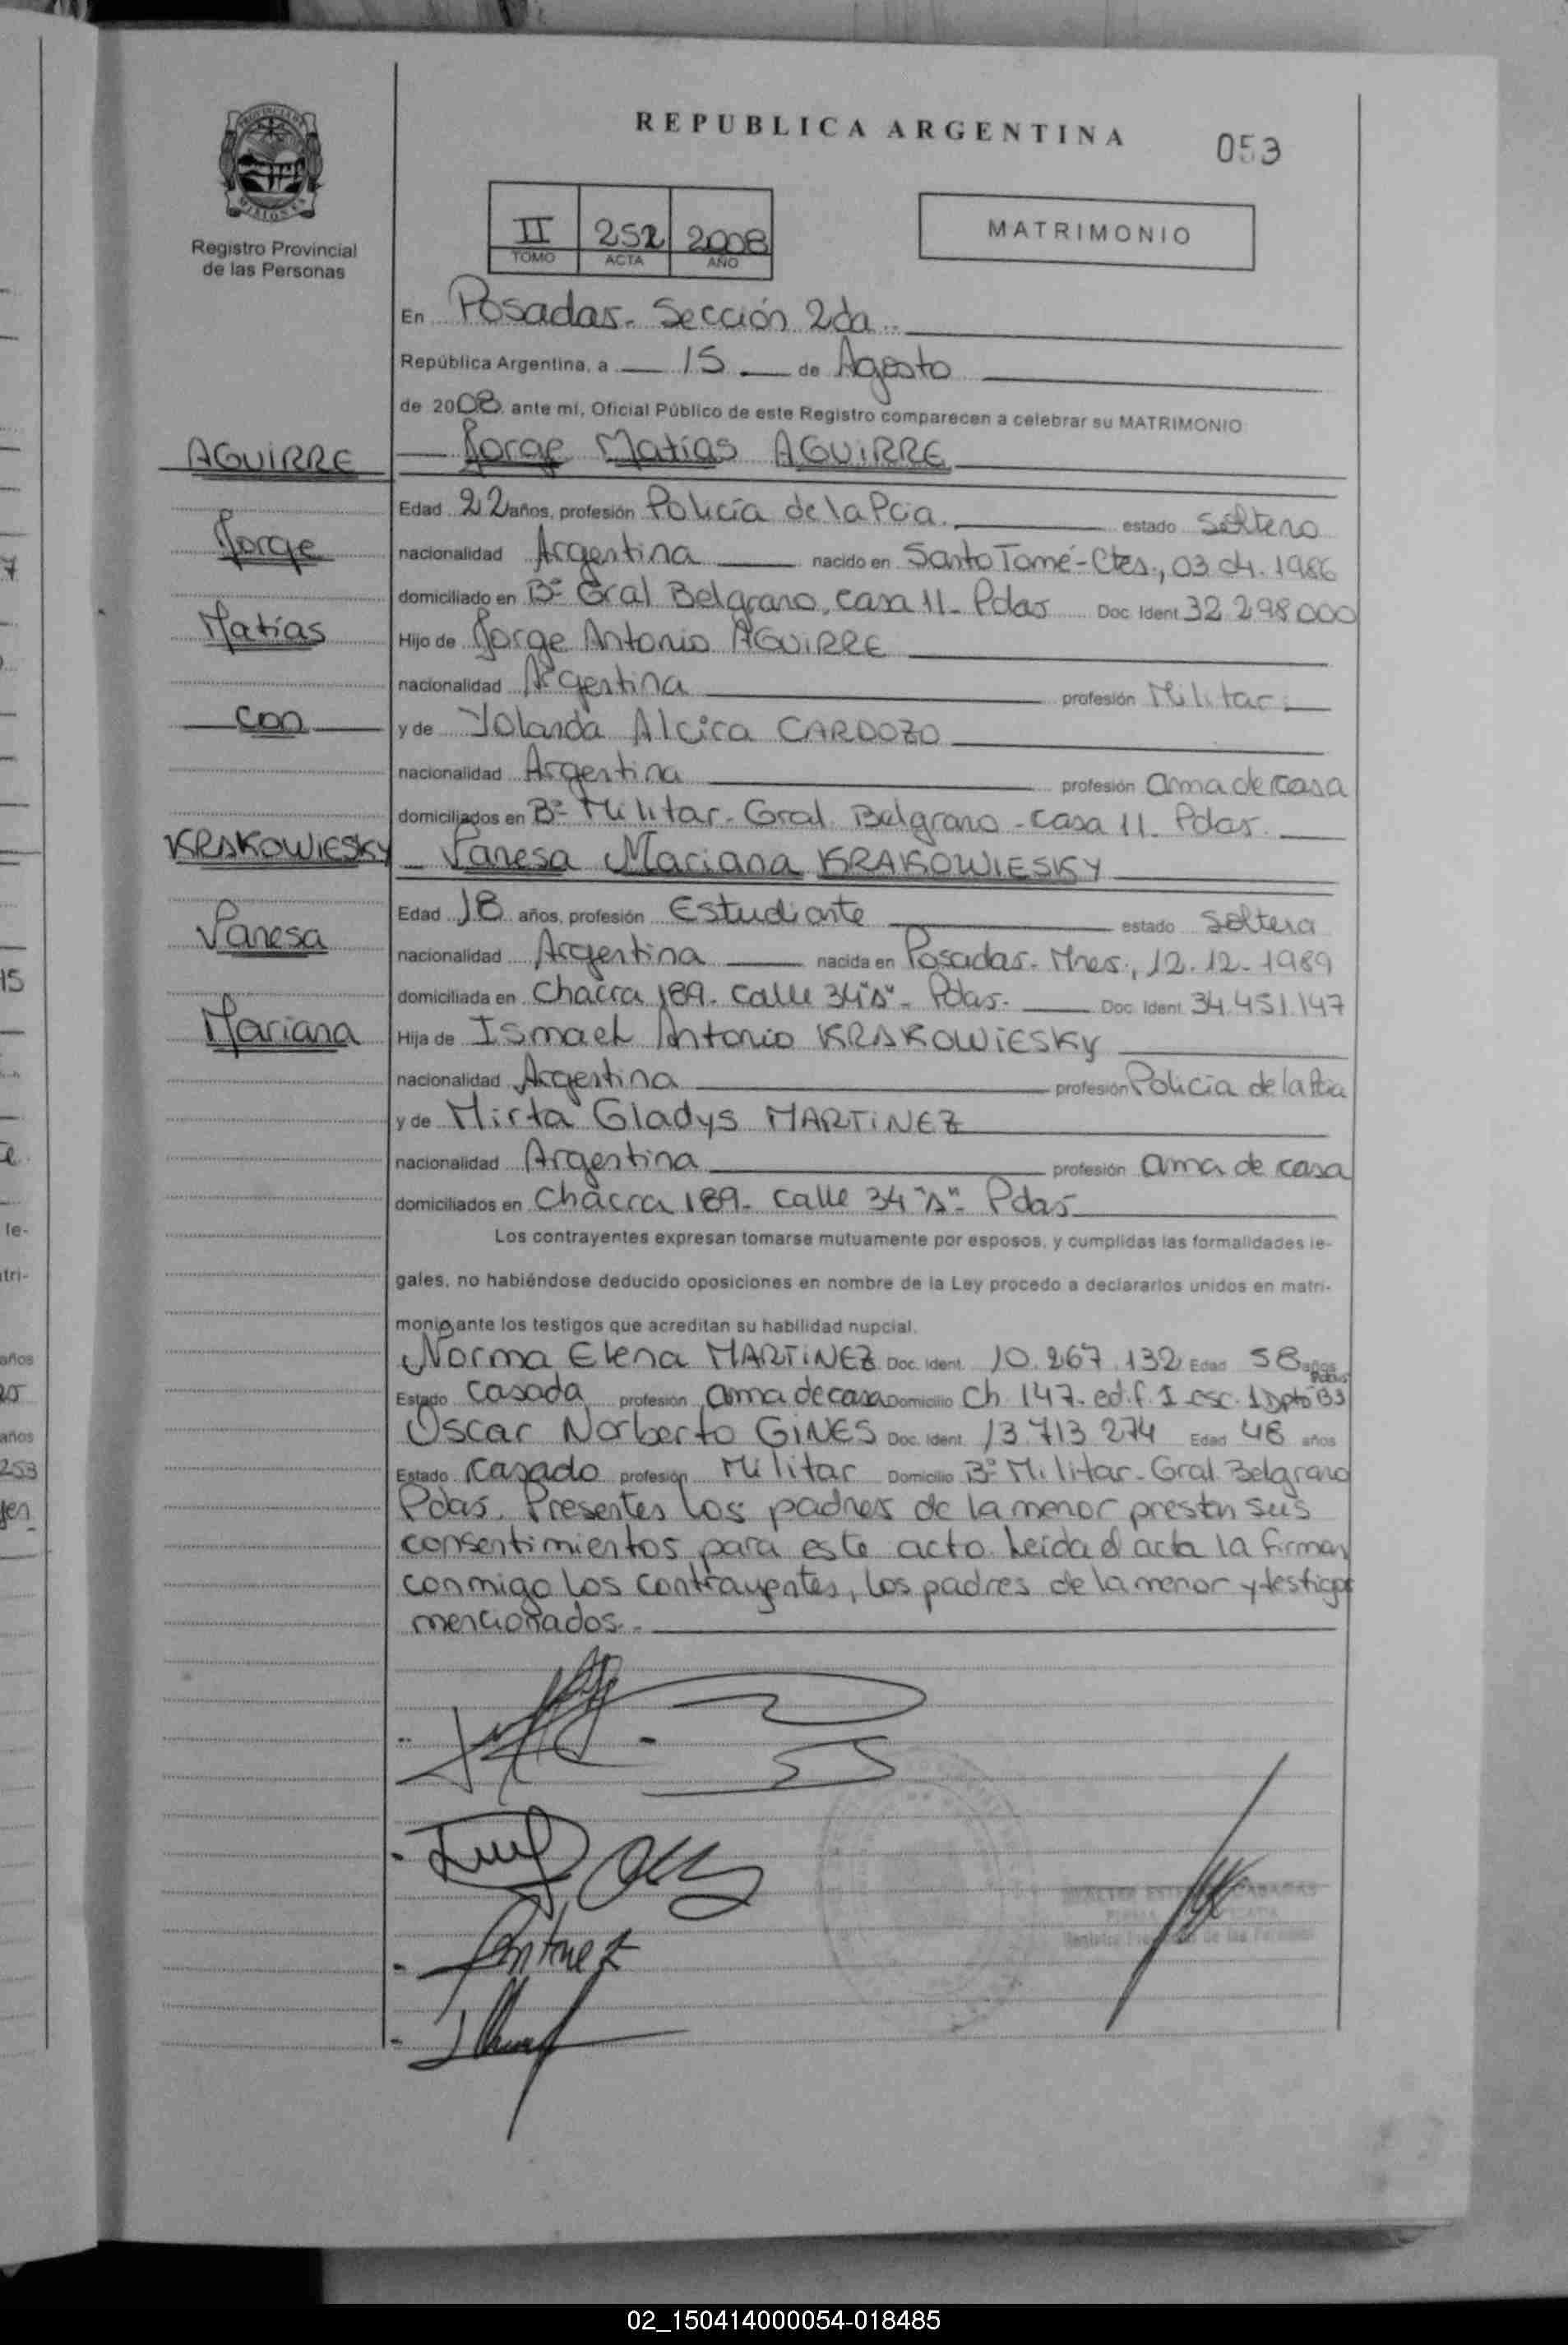 REPUBLICA ARGENTINA
053
PROVINCIA DE
MISIONES
Registro Provincial
de las Personas
II 252 2008
TOMO ACTA AÑO
MATRIMONIO
En Posadas. Sección 2da
República Argentina, a 15 de Agosto
de 2008 ante mí, Oficial Público de este Registro comparecen a celebrar su MATRIMONIO
AGUIRRE
Jorge Matías AGUIRRE
Edad 22 años, profesión Policía de la Pcia. estado Soltero
Jorge
nacionalidad Argentina nacido en Santo Tomé-Ctes., 03.04.1986
domiciliado en Bº Gral Belgrano, casa 11- Pdas Doc. Ident. 32.298.000
Matías
Hijo de Jorge Antonio AGUIRRE
nacionalidad Argentina profesión Militar
con
y de Yolanda Alcira CARDOZO
nacionalidad Argentina profesión ama de casa
domiciliados en Bº Militar- Gral. Belgrano - casa 11- Pdas.
KRAKOWIESKY
Vanesa Mariana KRAKOWIESKY
Edad 18 años, profesión Estudiante estado Soltera
Vanesa
nacionalidad Argentina nacida en Posadas- Mnes., 12.12.1989
domiciliada en Chacra 189- calle 34"A"- Pdas. Doc. Ident. 34.451.147
Mariana
Hija de Ismael Antonio KRAKOWIESKY
nacionalidad Argentina profesión Policía de la Pcia
y de Mirta Gladys MARTINEZ
nacionalidad Argentina profesión ama de casa
domiciliados en Chacra 189- calle 34"A"- Pdas
Los contrayentes expresan tomarse mutuamente por esposos, y cumplidas las formalidades le-
gales, no habiéndose deducido oposiciones en nombre de la Ley procedo a declararlos unidos en matri-
monio ante los testigos que acreditan su habilidad nupcial.
Norma Elena MARTINEZ Doc. Ident. 10.267.132 Edad 58 años
Estado Casada profesión ama de casa Domicilio Ch. 147- edif. I esc. 1 Dpto B3
Oscar Norberto GINES Doc. Ident. 13.713.274 Edad 48 años
Estado Casado profesión Militar Domicilio Bº Militar- Gral. Belgrano
Pdas. Presentes los padres de la menor prestan sus
consentimientos para este acto. Leída el acta la firman
conmigo los contrayentes, los padres de la menor y testigos
mencionados.-
02_150414000054-018485